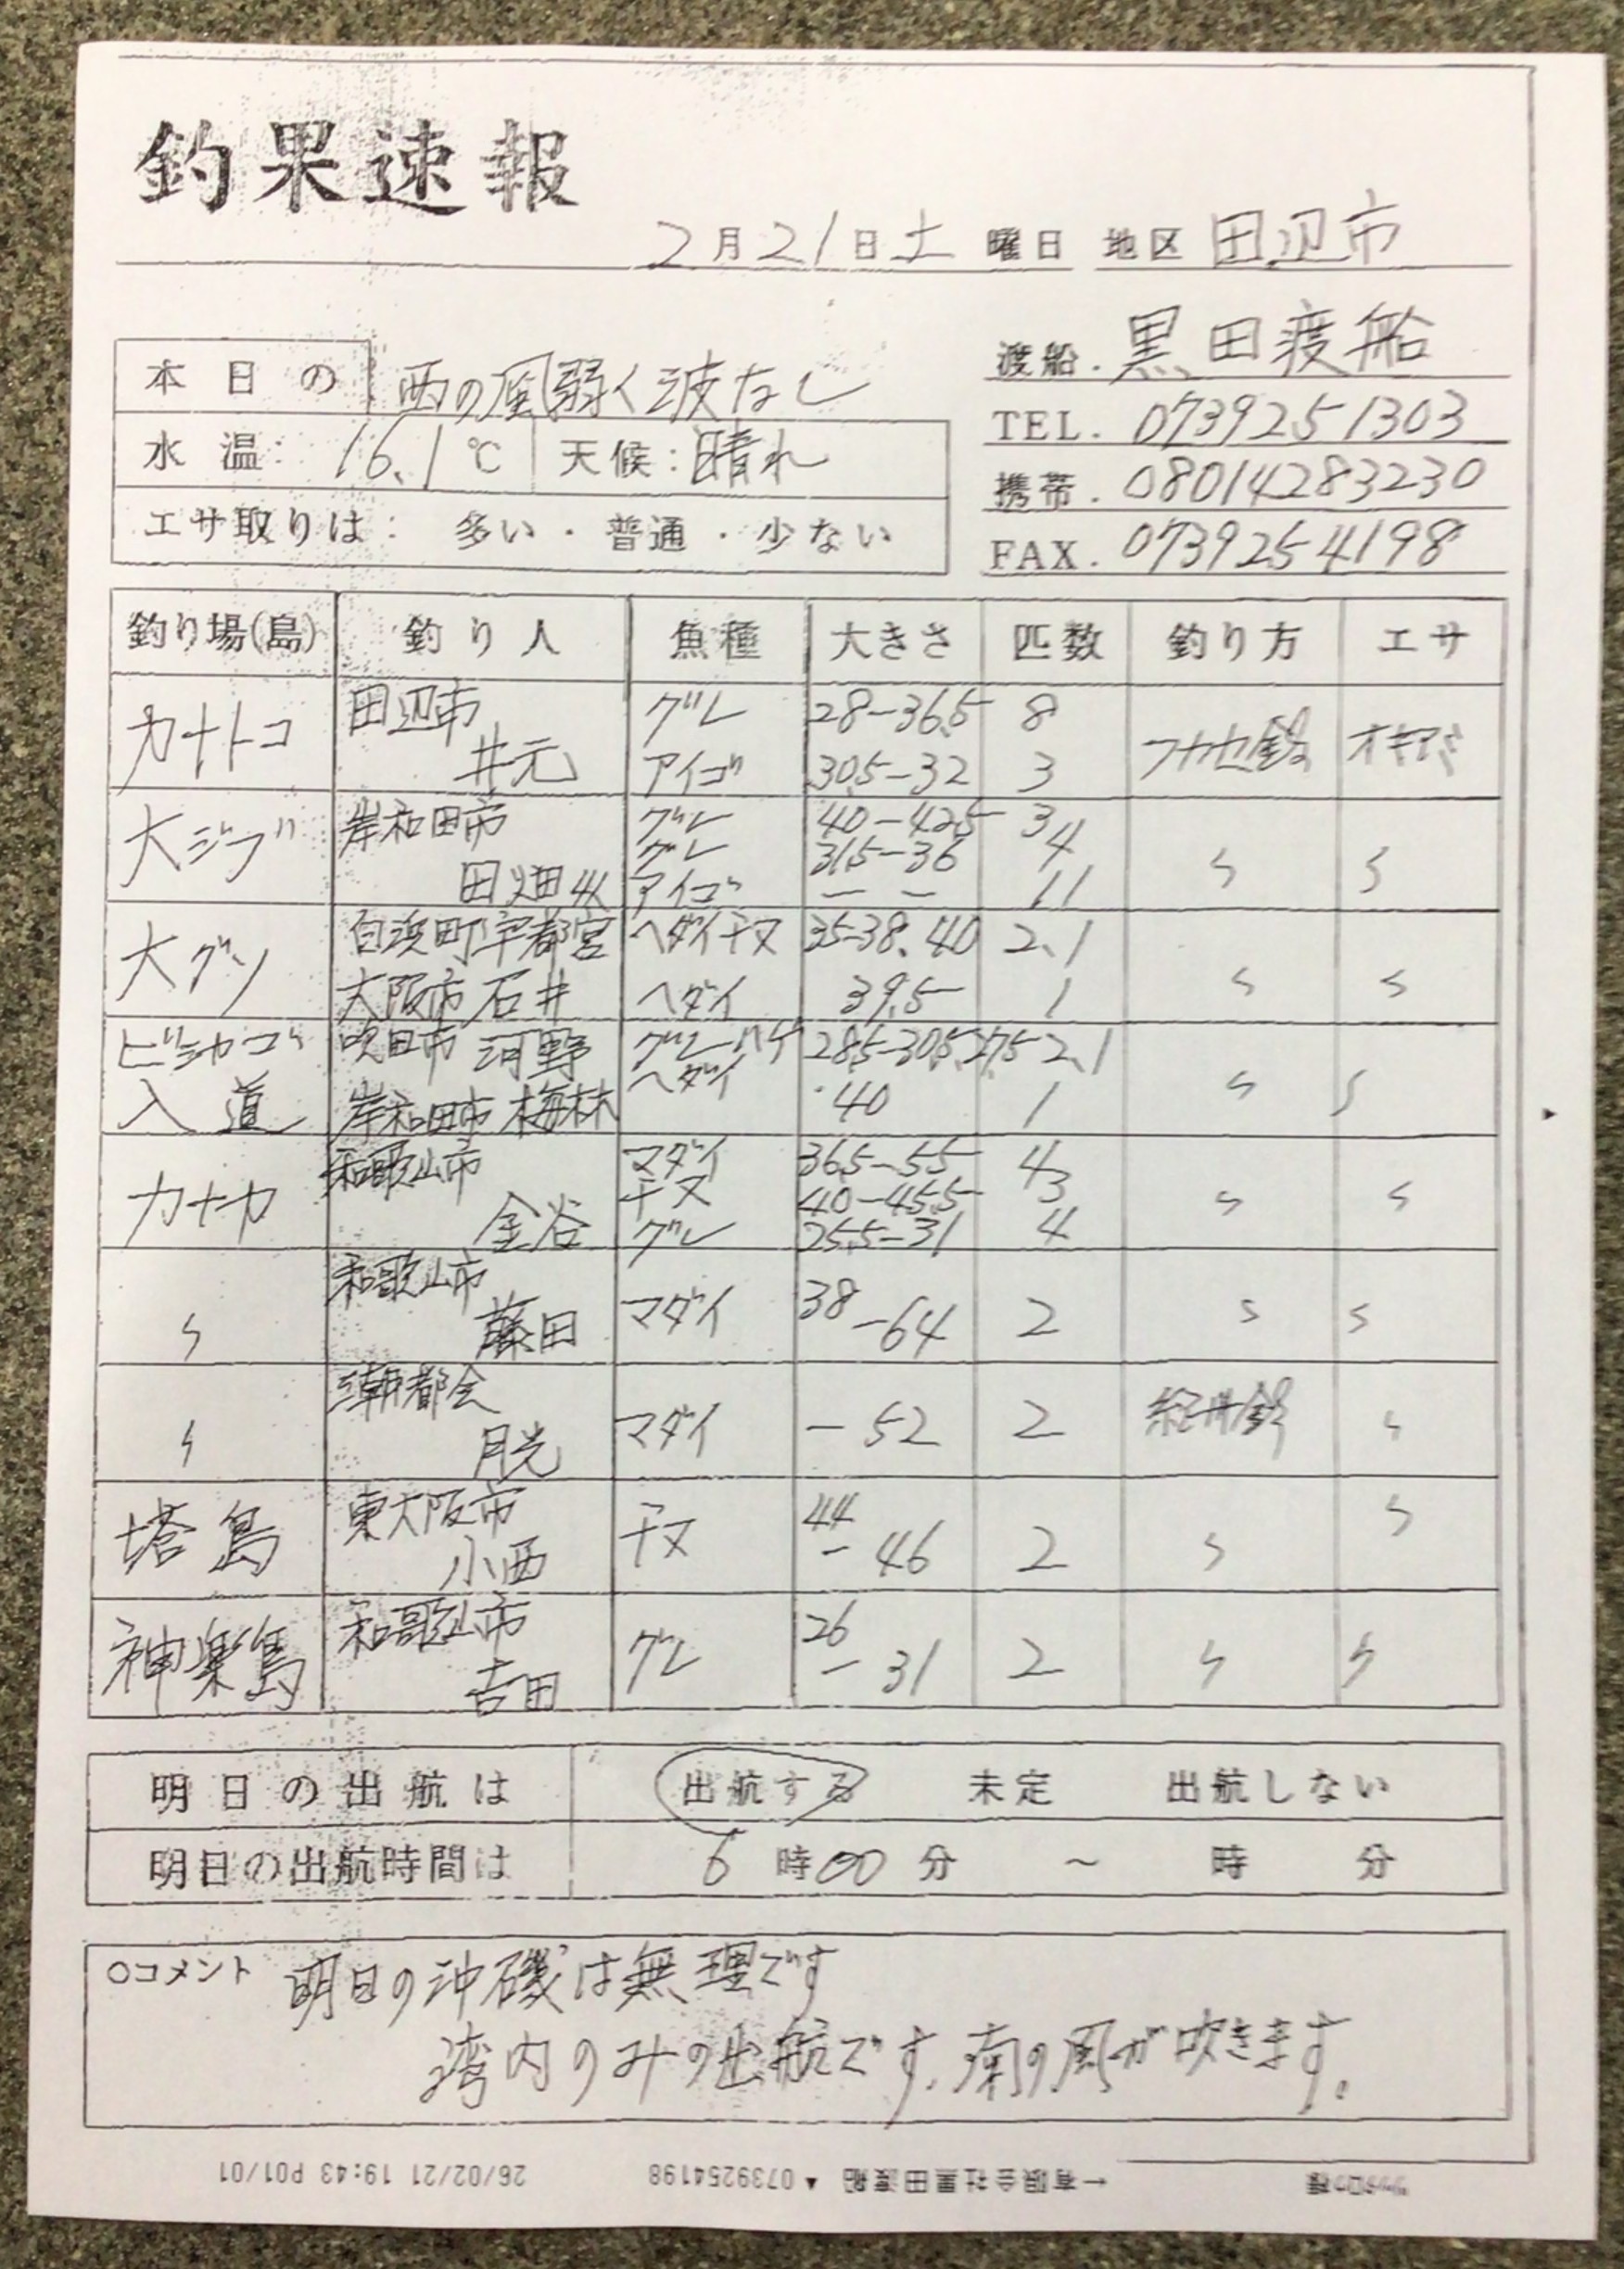 釣果速報
2月21日土曜日 地区 田辺市
渡船. 黒田渡船
本日の 西の風弱く波なし
TEL. 0739251303
水温: 16.1℃ 天候: 晴れ
携帯. 08014283230
エサ取りは: 多い・普通・少ない
FAX. 0739254198
釣り場(島) 釣り人 魚種 大きさ 匹数 釣り方 エサ
カナトコ 田辺市 井元 グレ 28-36.5 8 フカセ釣り オキアミ
アイゴ 30.5-32 3
大ジブ 岸和田市 田畑 グレ 40-42.5 3 〃 〃
グレ 31.5-36 4
アイゴ - - 11
大グソ 白浜町宇都宮 ヘダイ チヌ 35-38、40 2、1 〃 〃
大阪市 石井 ヘダイ 39.5 1
ビシャゴ 吹田市 河野 グレ ハゲ 28.5-30.5、27.5 2、1 〃 〃
入道 岸和田市 梅林 ヘダイ 40 1
カナカ 和歌山市 金谷 マダイ 36.5-55 4 〃 〃
チヌ 40-45.5 3
グレ 25.5-31 4
〃 和歌山市 藤田 マダイ 38-64 2 〃 〃
〃 潮都会 月光 マダイ -52 2 紀州釣 〃
塔島 東大阪市 小西 チヌ 44-46 2 〃 〃
神楽島 和歌山市 吉田 グレ 26-31 2 〃 〃
明日の出航は 出航する 未定 出航しない
明日の出航時間は 6時00分 ～ 時 分
○コメント 明日の沖磯は無理です
湾内のみの出航です、南の風が吹きます。
26/02/21 19:43 P01/01 ▲ 0739254198 ←有限会社黒田渡船